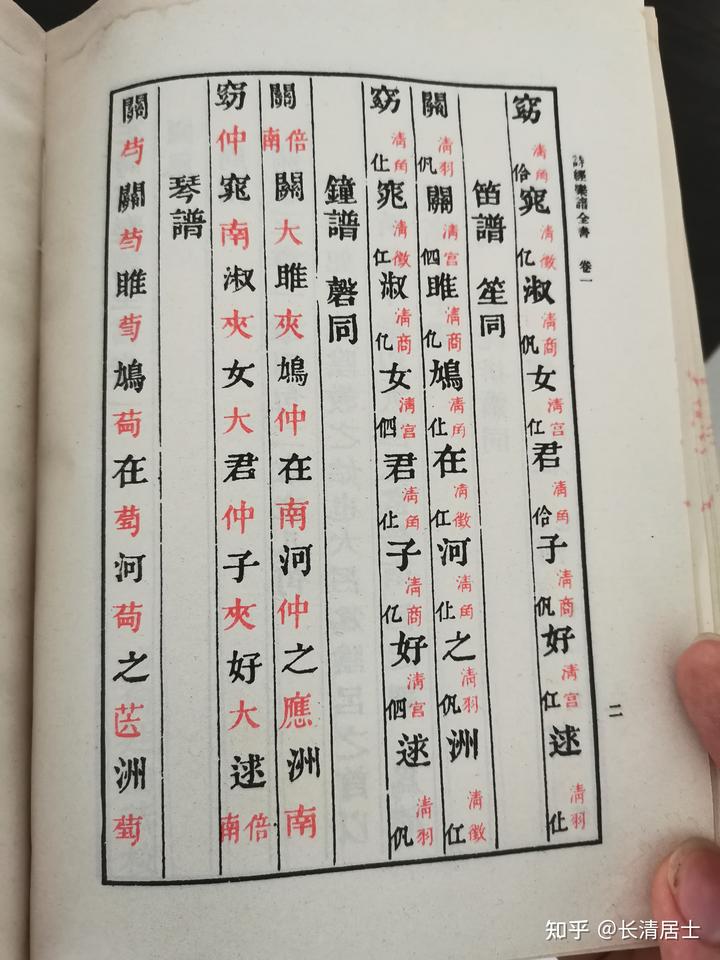 詩經樂譜全書 卷一
二
窈清角佮窕清徵亿淑清商㐽女清宮仜君清角佮子清商㐽好清宮仜逑清羽仩
笛譜 笙同
關清羽㐽關清宮伵雎清商亿鳩清角仩在清徵仜河清角仩之清羽㐽洲清徵仜
窈清角仩窕清徵仜淑清商亿女清宮伵君清角仩子清商亿好清宮伵逑清羽㐽
鐘譜 磬同
關倍南關大雎夾鳩仲在南河仲之應洲南
窈仲窕南淑夾女大君仲子夾好大逑倍南
琴譜
關關雎鳩在河之洲
知乎 @长清居士